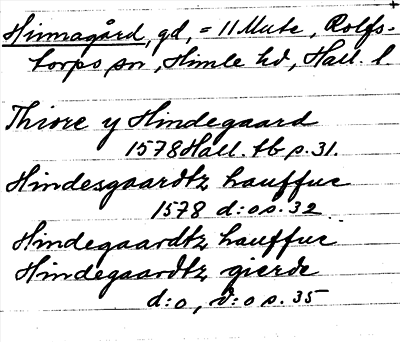 Hinnagård, gd, = 11 Mute, Rolfs-
torps sn, Himle hd, Hall. l
Thiore y Hindegaard
1578 Hall. tb p. 31.
Hindesgaardtz hauffue
1578 d:o p. 32
Hindegaardtz hauffue
Hindegaardtz gierde
d:o, d:o p. 35